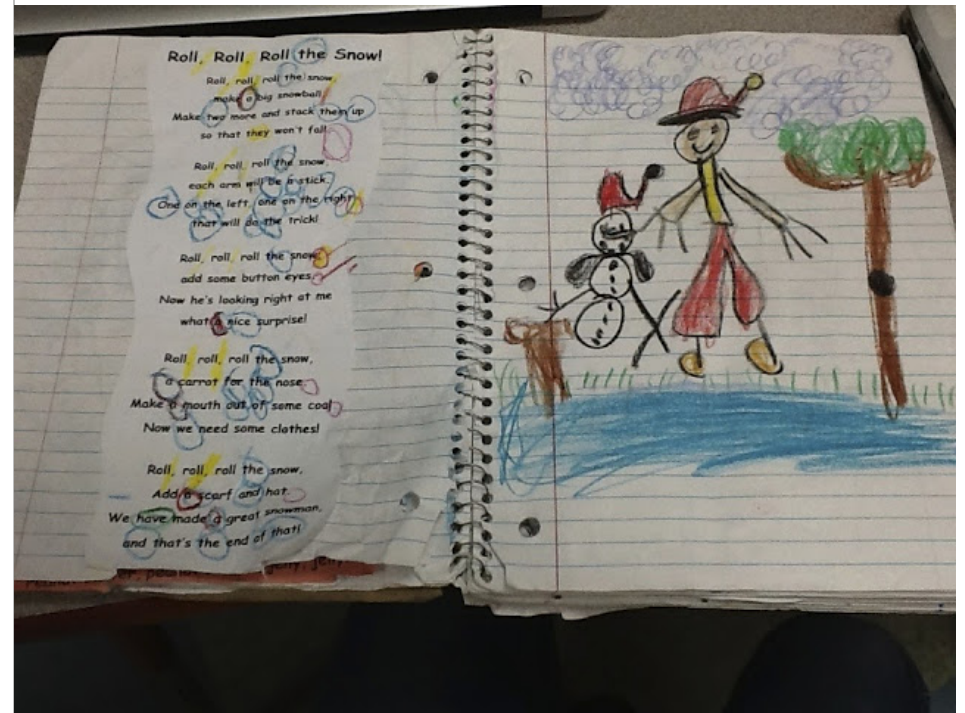 Roll, Roll, Roll the Snow!
Roll, roll, roll the snow,
make a big snowball.
Make two more and stack them up
so that they won't fall.
Roll, roll, roll the snow,
each arm will be a stick.
One on the left, one on the right,
that will do the trick!
Roll, roll, roll the snow,
add some button eyes.
Now he's looking right at me
what a nice surprise!
Roll, roll, roll the snow,
a carrot for the nose.
Make a mouth out of some coal
Now we need some clothes!
Roll, roll, roll the snow,
Add a scarf and hat.
We have made a great snowman,
and that's the end of that!
jelly, jelly